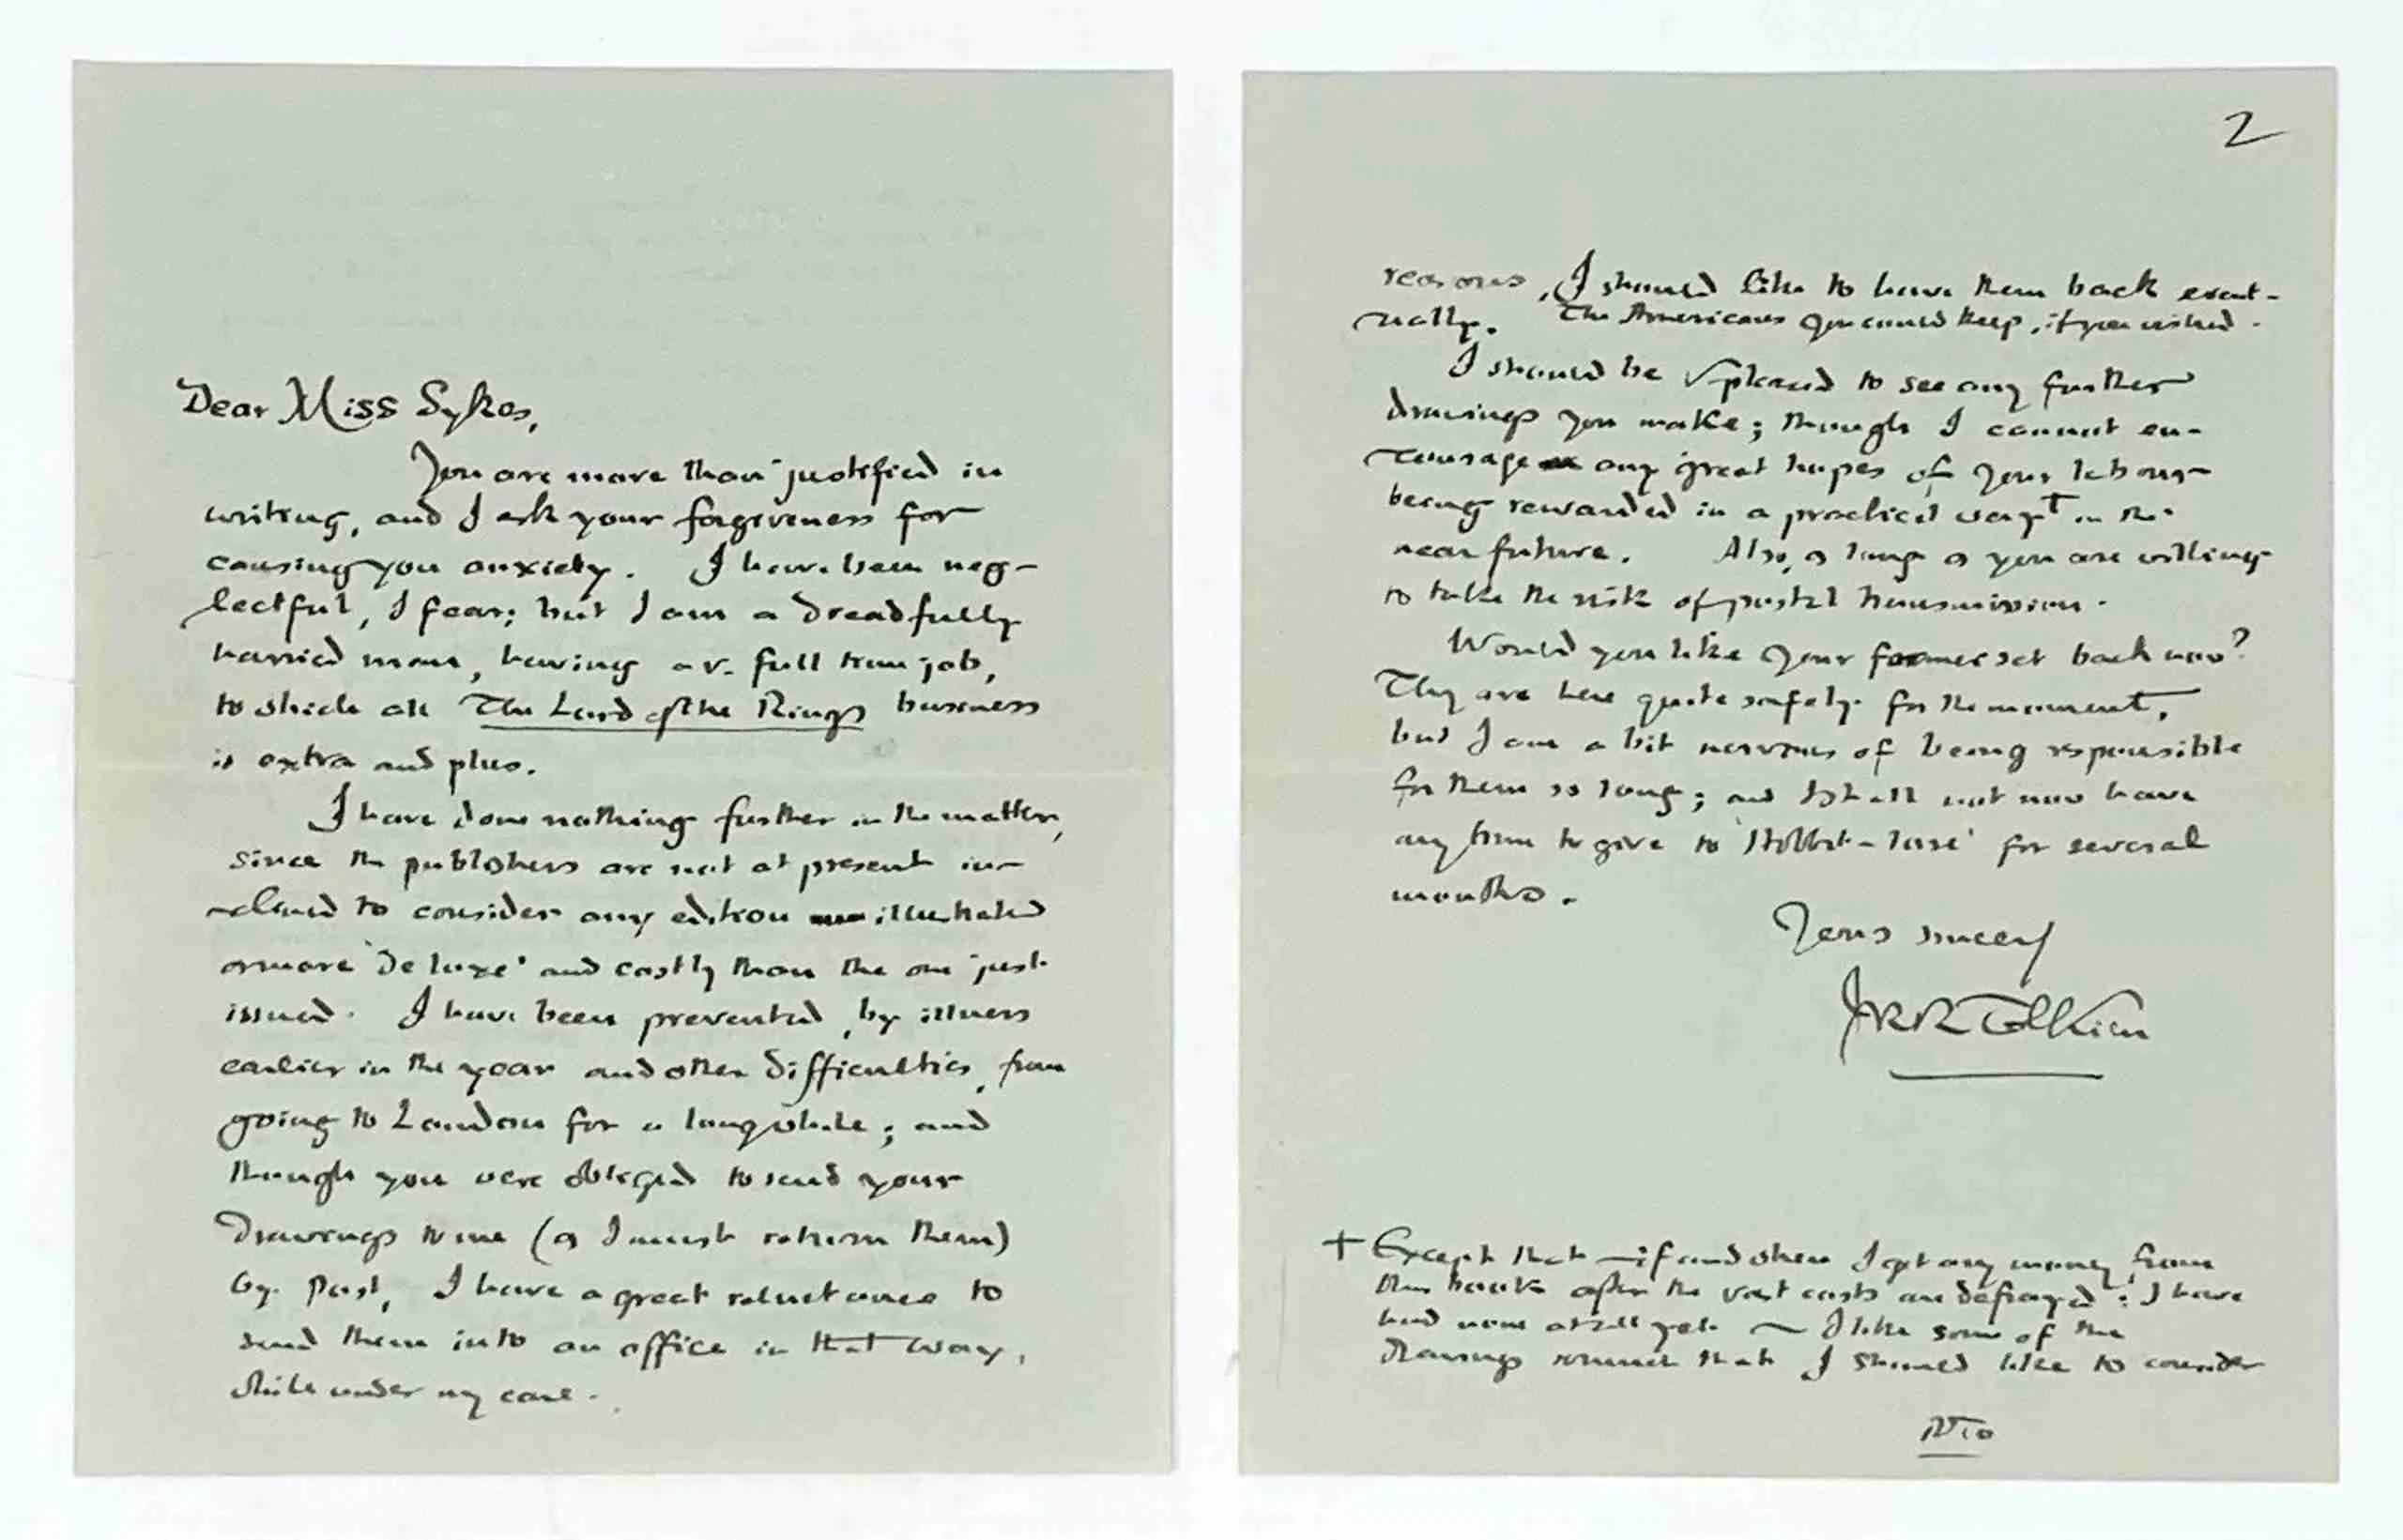 Dear Miss Sykes,
You are more than justified in
writing, and I ask your forgiveness for
causing you anxiety. I have been neg-
lectful, I fear; but I am a dreadfully
harried man, having a v. full time job,
to which all The Lord of the Rings business
is extra and plus.
I have done nothing further in the matter,
since the publishers are not at present in-
clined to consider any edition illustrated
or more 'de luxe' and costly than the one just
issued. I have been prevented, by illness
earlier in the year and other difficulties, from
going to London for a long while; and
though you were obliged to send your
drawings to me (as I must return them)
by post, I have a great reluctance to
send them into an office in that way,
while under my care.
2
reasons, I should like to have them back event-
ually. The Americans you could keep, if you wished.
I should be v. pleased to see any further
drawings you make; though I cannot en-
courage any great hopes of your labour
being rewarded in a practical way† in the
near future. Also, as long as you are willing
to take the risk of postal transmission.
Would you like your former set back now?
They are here quite safely for the moment,
but I am a bit nervous of being responsible
for them so long; and I shall not now have
any time to give to 'Hobbit-lore' for several
months.
Yours sincerely
JRR Tolkien
† Except that — if and when I get any money from
this book after the vast costs are defrayed: I have
had none at all yet — I like some of the
drawings so much that I should like to consider
PTO